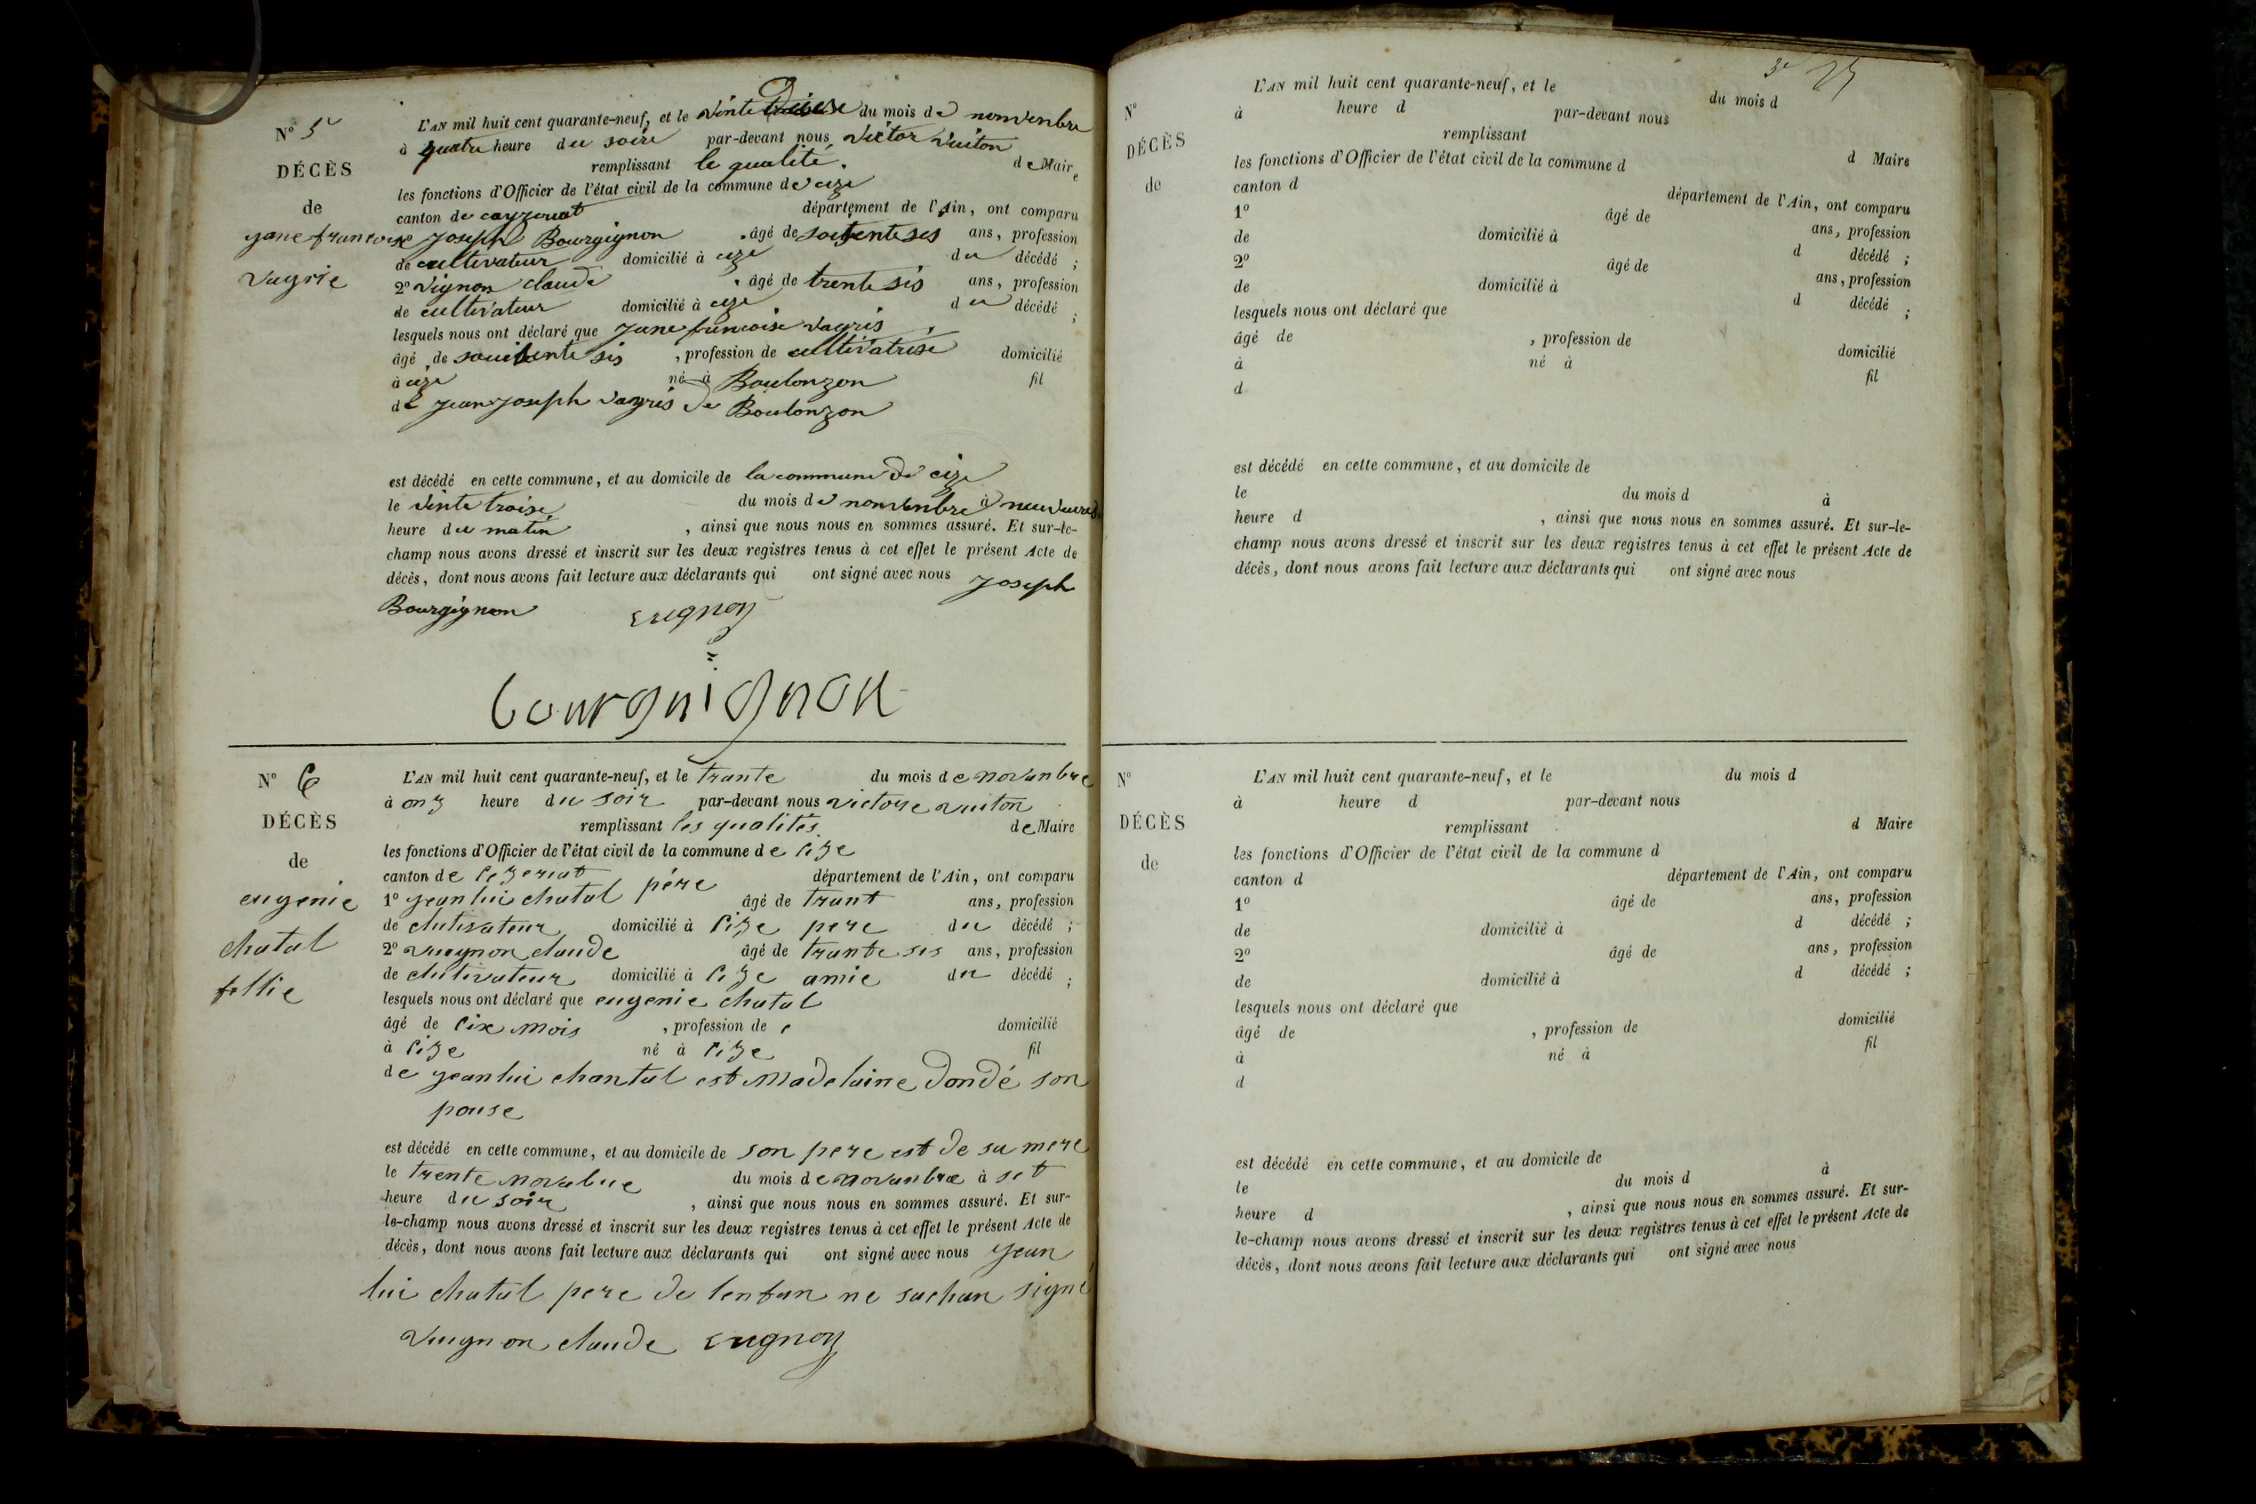 N° 5
DÉCÈS
de
jane francoise
vuyrie
L'AN mil huit cent quarante-neuf, et le vinte du mois de nonvenbre
à quatre heure du soire par-devant nous victor vuiton
remplissant le qualité. de Maire
les fonctions d'Officier de l'état civil de la commune de cize
canton de ceyzeriat département de l'Ain, ont comparu
joseph Bourgignon âgé de soitente sis ans, profession
de cultivateur domicilié à cize du décédé ;
2° vignon claude âgé de trente sis ans, profession
de cultivateur domicilié à cize du décédé ;
lesquels nous ont déclaré que jane francoise vayris
âgé de sis , profession de cultivatrise domicilié
à cize né à Boulonzon fil
de jean joseph vayris de Boulonzon
est décédé en cette commune, et au domicile de la commune de cize
le vinte troise du mois de nonvenbre à
heure du matin , ainsi que nous nous en sommes assuré. Et sur-le-
champ nous avons dressé et inscrit sur les deux registres tenus à cet effet le présent Acte de
décès, dont nous avons fait lecture aux déclarants qui ont signé avec nous joseph
Bourgignon
bourgnignon
N° 6
DÉCÈS
de
eugenie
chatal
fellie
L'AN mil huit cent quarante-neuf, et le trante du mois de novanbre
à onz heure du soir par-devant nous victore vuiton
remplissant les qualités. de Maire
les fonctions d'Officier de l'état civil de la commune de cize
canton de cezeriat département de l'Ain, ont comparu
1° jean lui chatal pére âgé de trant ans, profession
de clutivateur domicilié à cize pere du décédé ;
2° vuignon claude âgé de trante sis ans, profession
de clutivateur domicilié à cize amie du décédé ;
lesquels nous ont déclaré que eugenie chatal
âgé de cix mois , profession de domicilié
à cize né à cize fil
de jean lui chantal est Madelaine dondé son
pouse
est décédé en cette commune, et au domicile de son pere est de sa mere
le trente du mois de novanbre à set
heure du soir , ainsi que nous nous en sommes assuré. Et sur-
le-champ nous avons dressé et inscrit sur les deux registres tenus à cet effet le présent Acte de
décès, dont nous avons fait lecture aux déclarants qui ont signé avec nous jean
lui chatal pere de lenfan ne sachan signé
vuignon claude
N°
DÉCÈS
de
L'AN mil huit cent quarante-neuf, et le du mois d
à heure d par-devant nous
remplissant d Maire
les fonctions d'Officier de l'état civil de la commune d
canton d département de l'Ain, ont comparu
1° âgé de ans, profession
de domicilié à d décédé ;
2° âgé de ans, profession
de domicilié à d décédé ;
lesquels nous ont déclaré que
âgé de , profession de domicilié
à né à fil
d
est décédé en cette commune, et au domicile de
le du mois d à
heure d , ainsi que nous nous en sommes assuré. Et sur-le-
champ nous avons dressé et inscrit sur les deux registres tenus à cet effet le présent Acte de
décès, dont nous avons fait lecture aux déclarants qui ont signé avec nous
N°
DÉCÈS
de
L'AN mil huit cent quarante-neuf, et le du mois d
à heure d par-devant nous
remplissant d Maire
les fonctions d'Officier de l'état civil de la commune d
canton d département de l'Ain, ont comparu
1° âgé de ans, profession
de domicilié à d décédé ;
2° âgé de ans, profession
de domicilié à d décédé ;
lesquels nous ont déclaré que
âgé de , profession de domicilié
à né à fil
d
est décédé en cette commune, et au domicile de
le du mois d à
heure d , ainsi que nous nous en sommes assuré. Et sur-
le-champ nous avons dressé et inscrit sur les deux registres tenus à cet effet le présent Acte de
décès, dont nous avons fait lecture aux déclarants qui ont signé avec nous